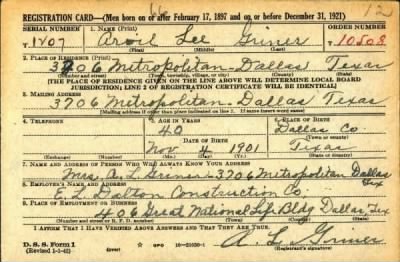 66 12
REGISTRATION CARD—(Men born on or after February 17, 1897 and on or before December 31, 1921)
SERIAL NUMBER 1. NAME (Print) ORDER NUMBER
1207 Arvil Lee Griner 10503
(First) (Middle) (Last)
2. PLACE OF RESIDENCE (Print)
3706 Metropolitan Dallas Texas
(Number and street) (Town, township, village, or city) (County) (State)
[THE PLACE OF RESIDENCE GIVEN ON THE LINE ABOVE WILL DETERMINE LOCAL BOARD
JURISDICTION; LINE 2 OF REGISTRATION CERTIFICATE WILL BE IDENTICAL]
3. MAILING ADDRESS
3706 Metropolitan Dallas Texas
[Mailing address if other than place indicated on line 2. If same insert word same]
4. TELEPHONE 5. AGE IN YEARS 6. PLACE OF BIRTH
40 Dallas Co
DATE OF BIRTH (Town or county)
Nov 4 1901 Texas
(Exchange) (Number) (Mo.) (Day) (Yr.) (State or country)
7. NAME AND ADDRESS OF PERSON WHO WILL ALWAYS KNOW YOUR ADDRESS
Mrs. A. L. Griner—3706 Metropolitan Dallas Tex
8. EMPLOYER'S NAME AND ADDRESS
E. L. Dalton Construction Co.
9. PLACE OF EMPLOYMENT OR BUSINESS
406 Great National Life Bldg Dallas, Tex
(Number and street or R. F. D. number) (Town) (County) (State)
I AFFIRM THAT I HAVE VERIFIED ABOVE ANSWERS AND THAT THEY ARE TRUE.
D. S. S. Form 1
(Revised 1-1-42) (over) GPO 16—21630-1 A. L. Griner
(Registrant's signature)